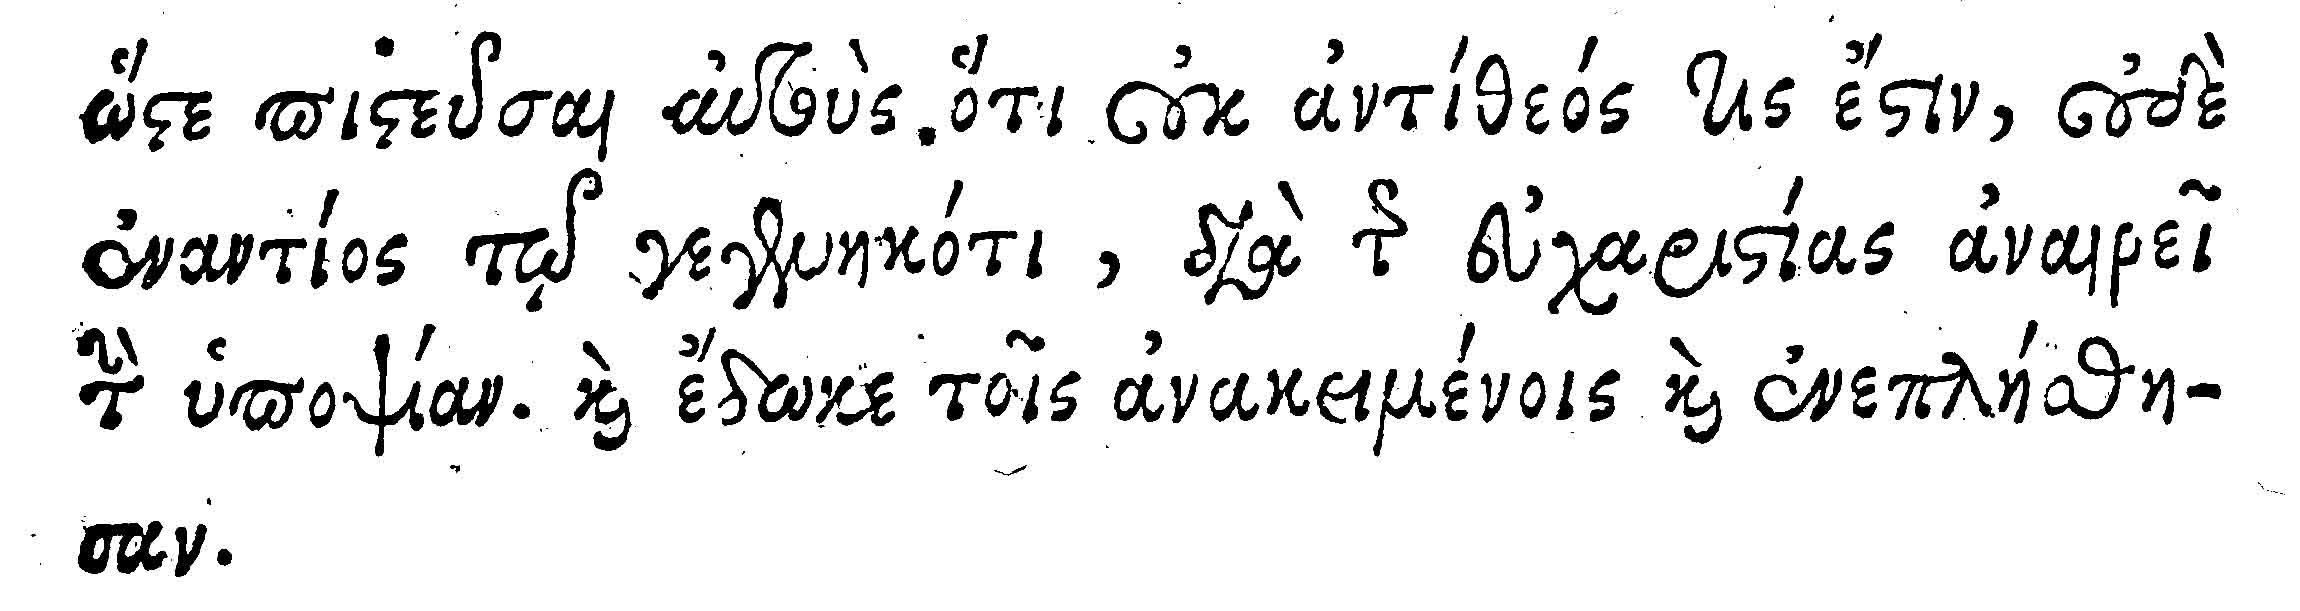 ὥστε πιστεῦσαι αὐτοὺς. ὅτι οὐκ ἀντίθεός τις ἔστιν, οὐδὲ
ἐναντίος τῷ γεγεννηκότι, διὰ τῆς εὐχαριστίας ἀναιρεῖ
τὴν ὑποψίαν. καὶ ἔδωκε τοῖς ἀνακειμένοις καὶ ἐνεπλήσθη-
σαν.